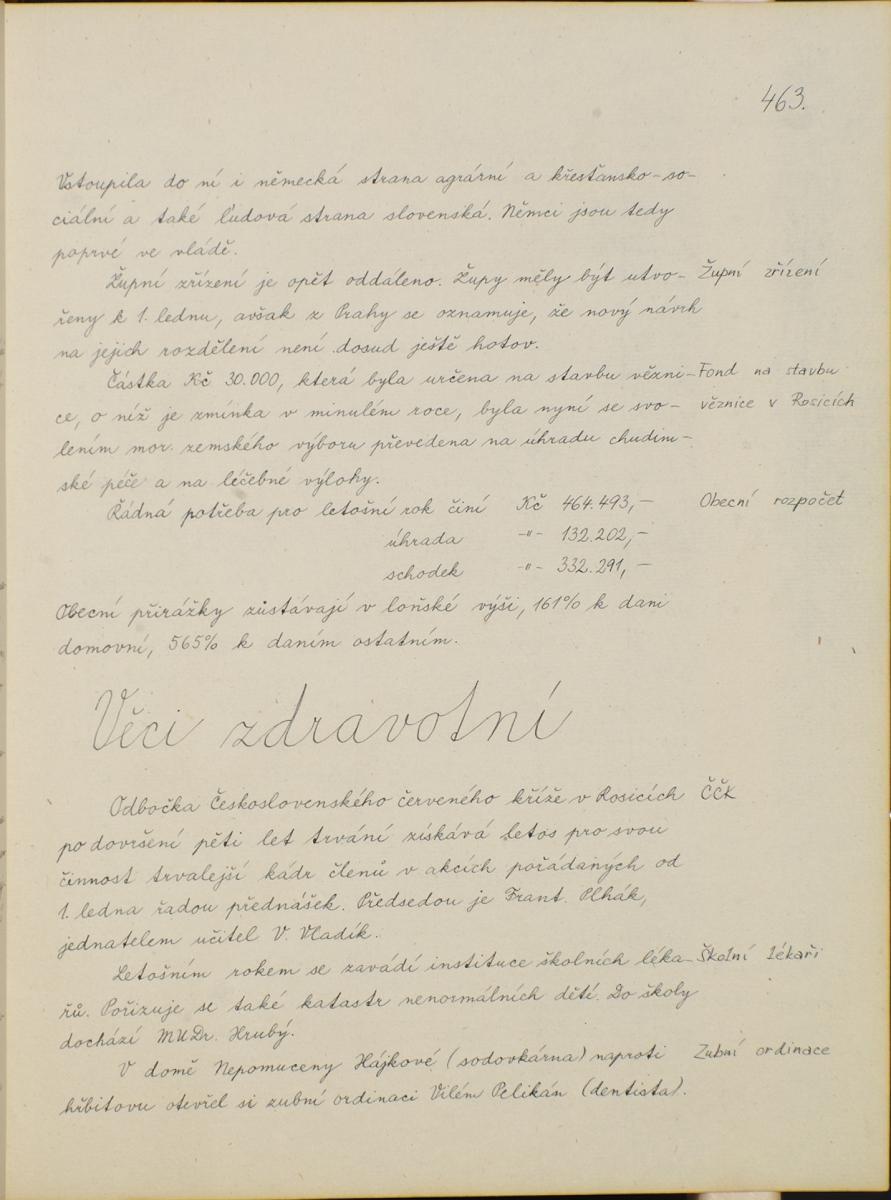 463.
Vstoupila do ní i německá strana agrární a křesťansko-so-
ciální a také ľudová strana slovenská. Němci jsou tedy
poprvé ve vládě.
Župní zřízení je opět oddáleno. Župy měly být utvo- Župní zřízení
řeny k 1. lednu, avšak z Prahy se oznamuje, že nový návrh
na jejich rozdělení není dosud ještě hotov.
Částka Kč 30.000, která byla určena na stavbu vězni- Fond na stavbu
ce, o níž je zmínka v minulém roce, byla nyní se svo- věznice v Rosicích
lením mor. zemského výboru převedena na úhradu chudin-
ské péče a na léčebné výlohy.
Řádná potřeba pro letošní rok činí Kč 464.493,- Obecní rozpočet
úhrada -"- 132.202,-
schodek -"- 332.291,-
Obecní přirážky zůstávají v loňské výši, 161% k dani
domovní, 565% k daním ostatním.
Věci zdravotní
Odbočka Československého červeného kříže v Rosicích ČČK
po dovršení pěti let trvání získává letos pro svou
činnost trvalejší kádr členů v akcích pořádaných od
1. ledna řadou přednášek. Předsedou je Frant. Plhák,
jednatelem učitel V. Vladík.
Letošním rokem se zavádí instituce školních léka- Školní lékaři
řů. Pořizuje se také katastr nenormálních dětí. Do školy
dochází MUDr. Hrubý.
V domě Nepomuceny Hájkové (sodovkárna) naproti Zubní ordinace
hřbitovu otevřel si zubní ordinaci Vilém Pelikán (dentista).